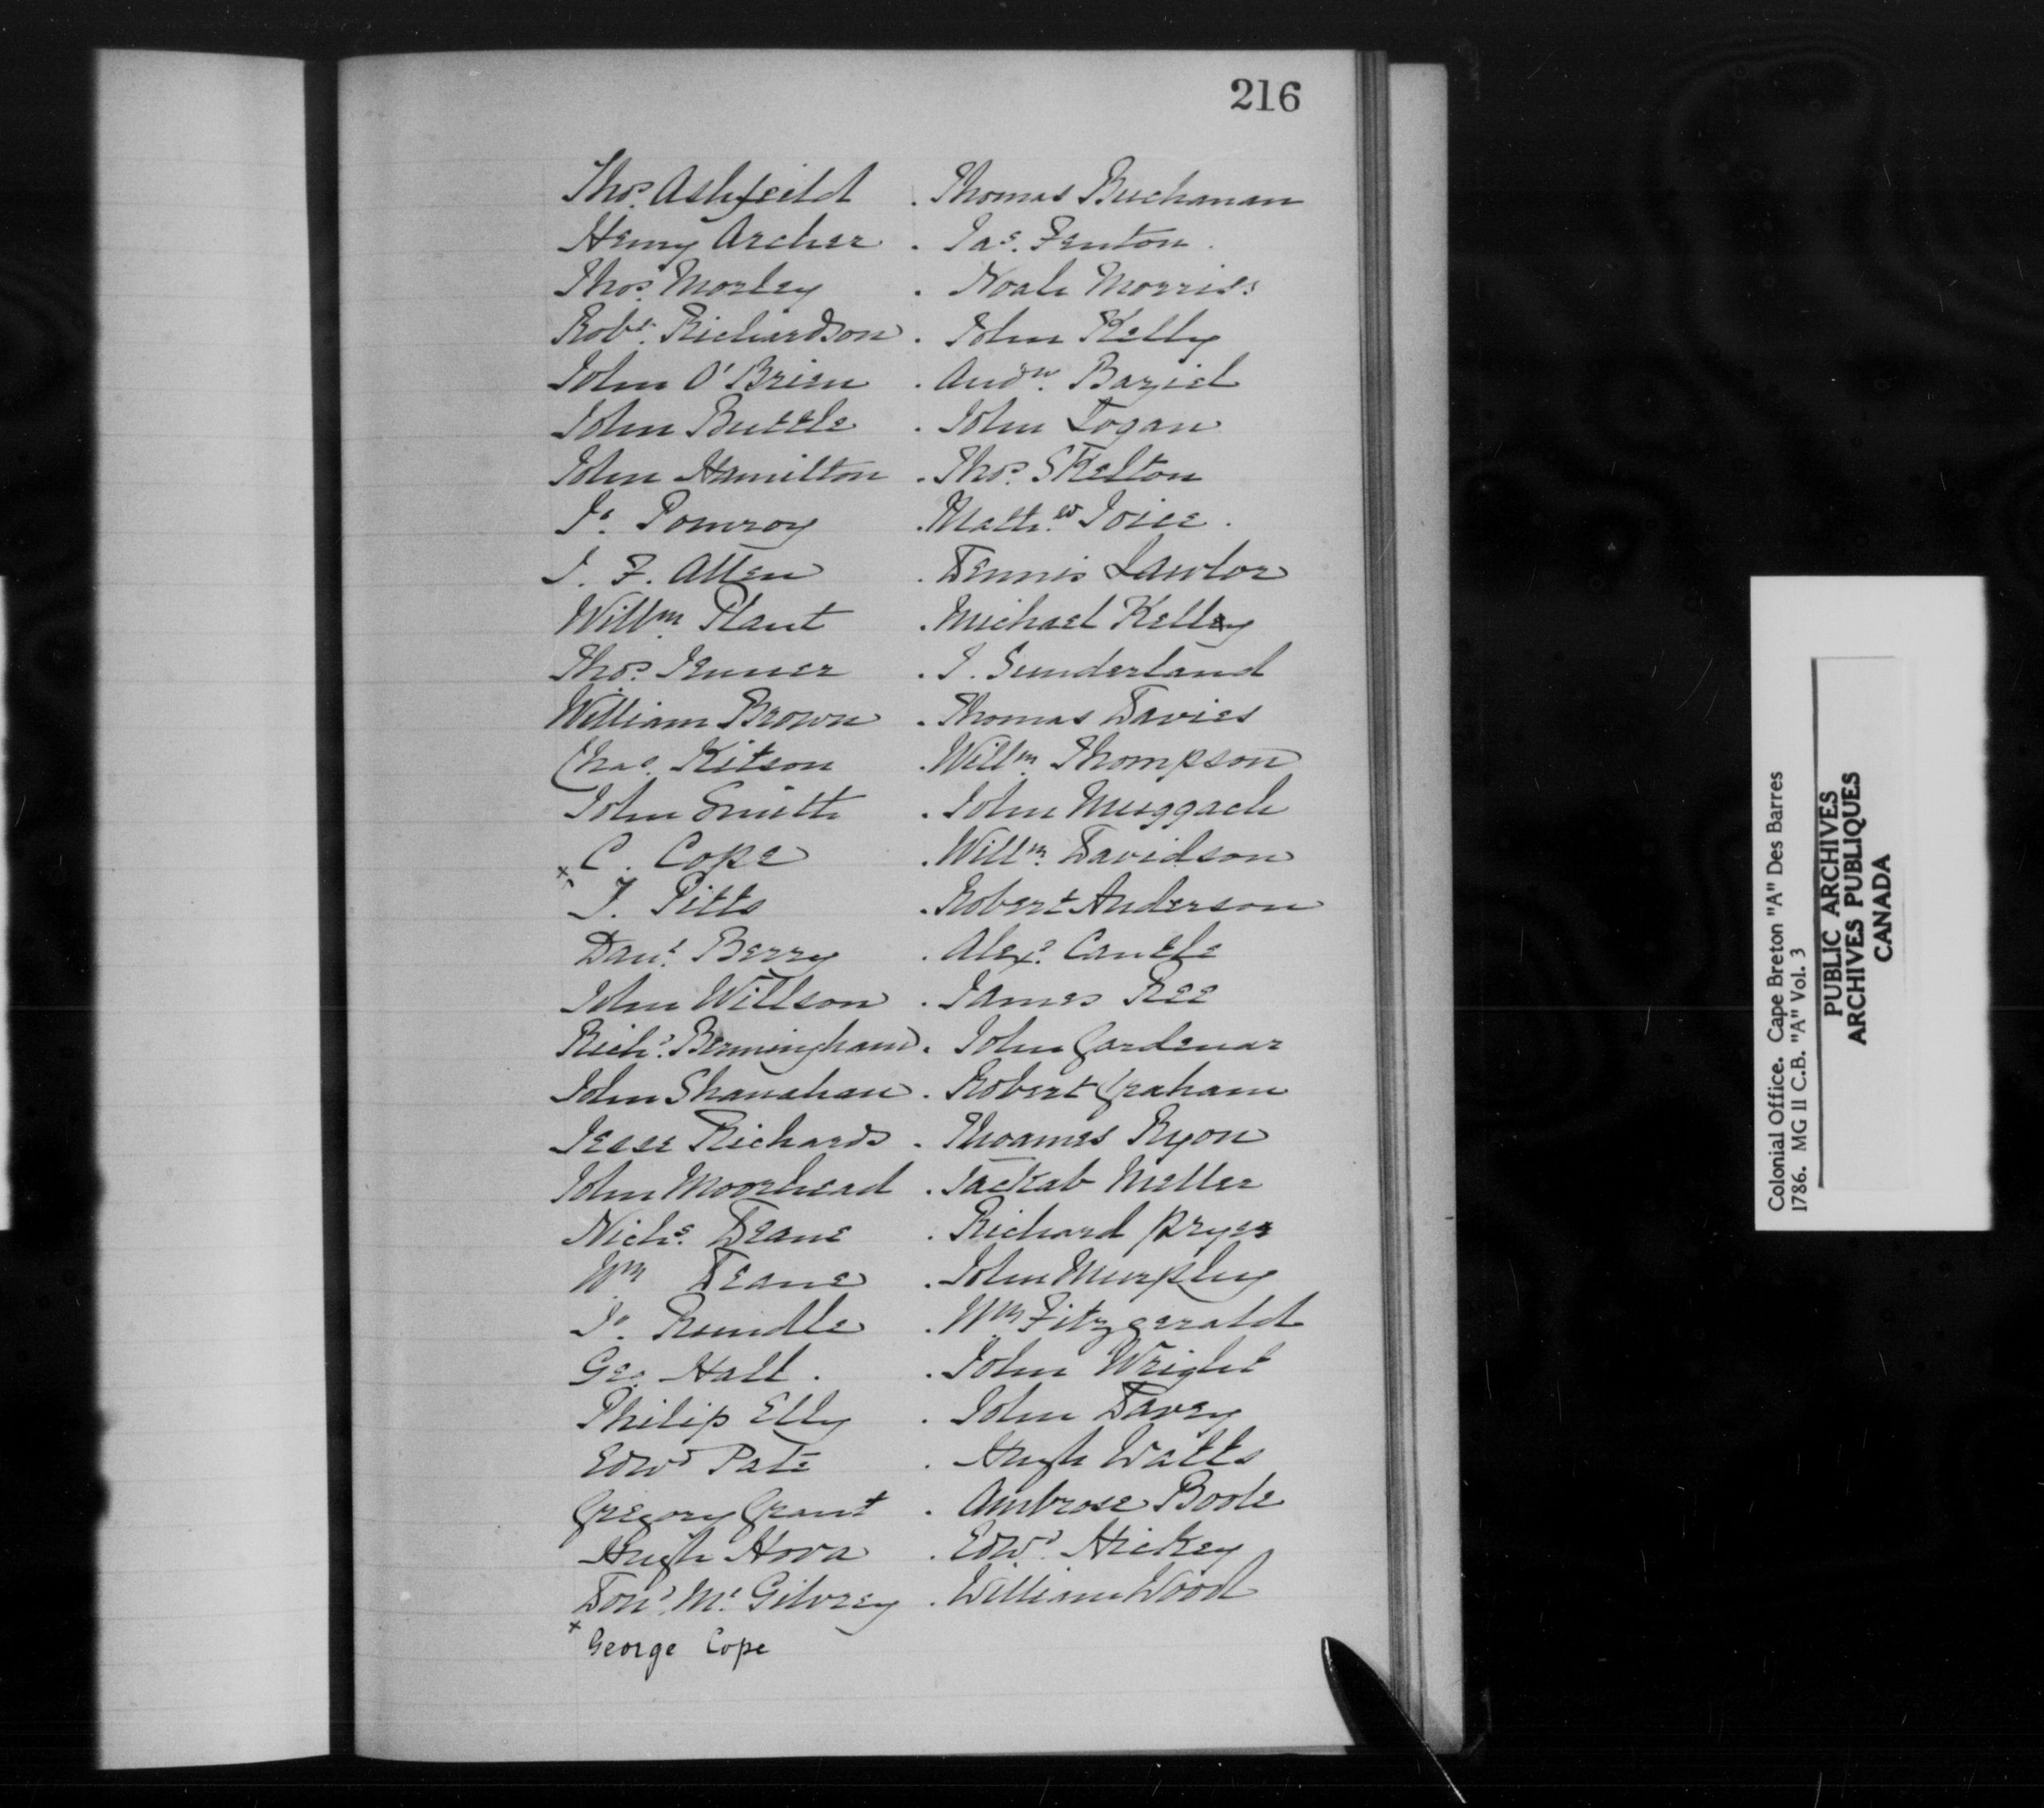 216
Thos. Ashfeild . Thomas Buchanan
Henry Archer . Jas. Fenton.
Thos. Morley . Noah Morriss
Robt. Richardson . John Kelly
John O'Brien . Andw. Baziel
John Buttle . John Logan
John Hamilton . Thos. Skelton
Js. Pomroy . Matthw. Joice.
J. F. Allen . Dennis Lawlor
Willm. Plant . Michael Kelley
Thos. Jenner . J. Sunderland
William Brown . Thomas Davies
Chas. Kitson . Willm. Thompson
John Smith . John Muggach
x C. Cope . Willm. Davidson
J. Pitts . Robert Anderson
Danl. Berry . Alexr. Cantle
John Willson . James Ree
Richd. Bermingham . John Gardenar
John Shanahan . Robert Graham
Jesse Richards . Thoames Ryon
John Moorhead . Jackab Meller
Nichs. Deane . Richard pryer
Wm. Deane . John Murphy
Jo. Rundle . Wm. Fitzgerald
Geo. Hall . . John Wright
Philip Elly . John Davey
Edwd Pate . Hugh Watts
Gregory Grant . Ambrose Boole
Hugh Hora . Edwd. Hickey
Dond. Mc. Gilvrey . William Wood
x George Cope
Colonial Office. Cape Breton "A" Des Barres
1786. MG 11 C.B. "A" Vol. 3
PUBLIC ARCHIVES
ARCHIVES PUBLIQUES
CANADA